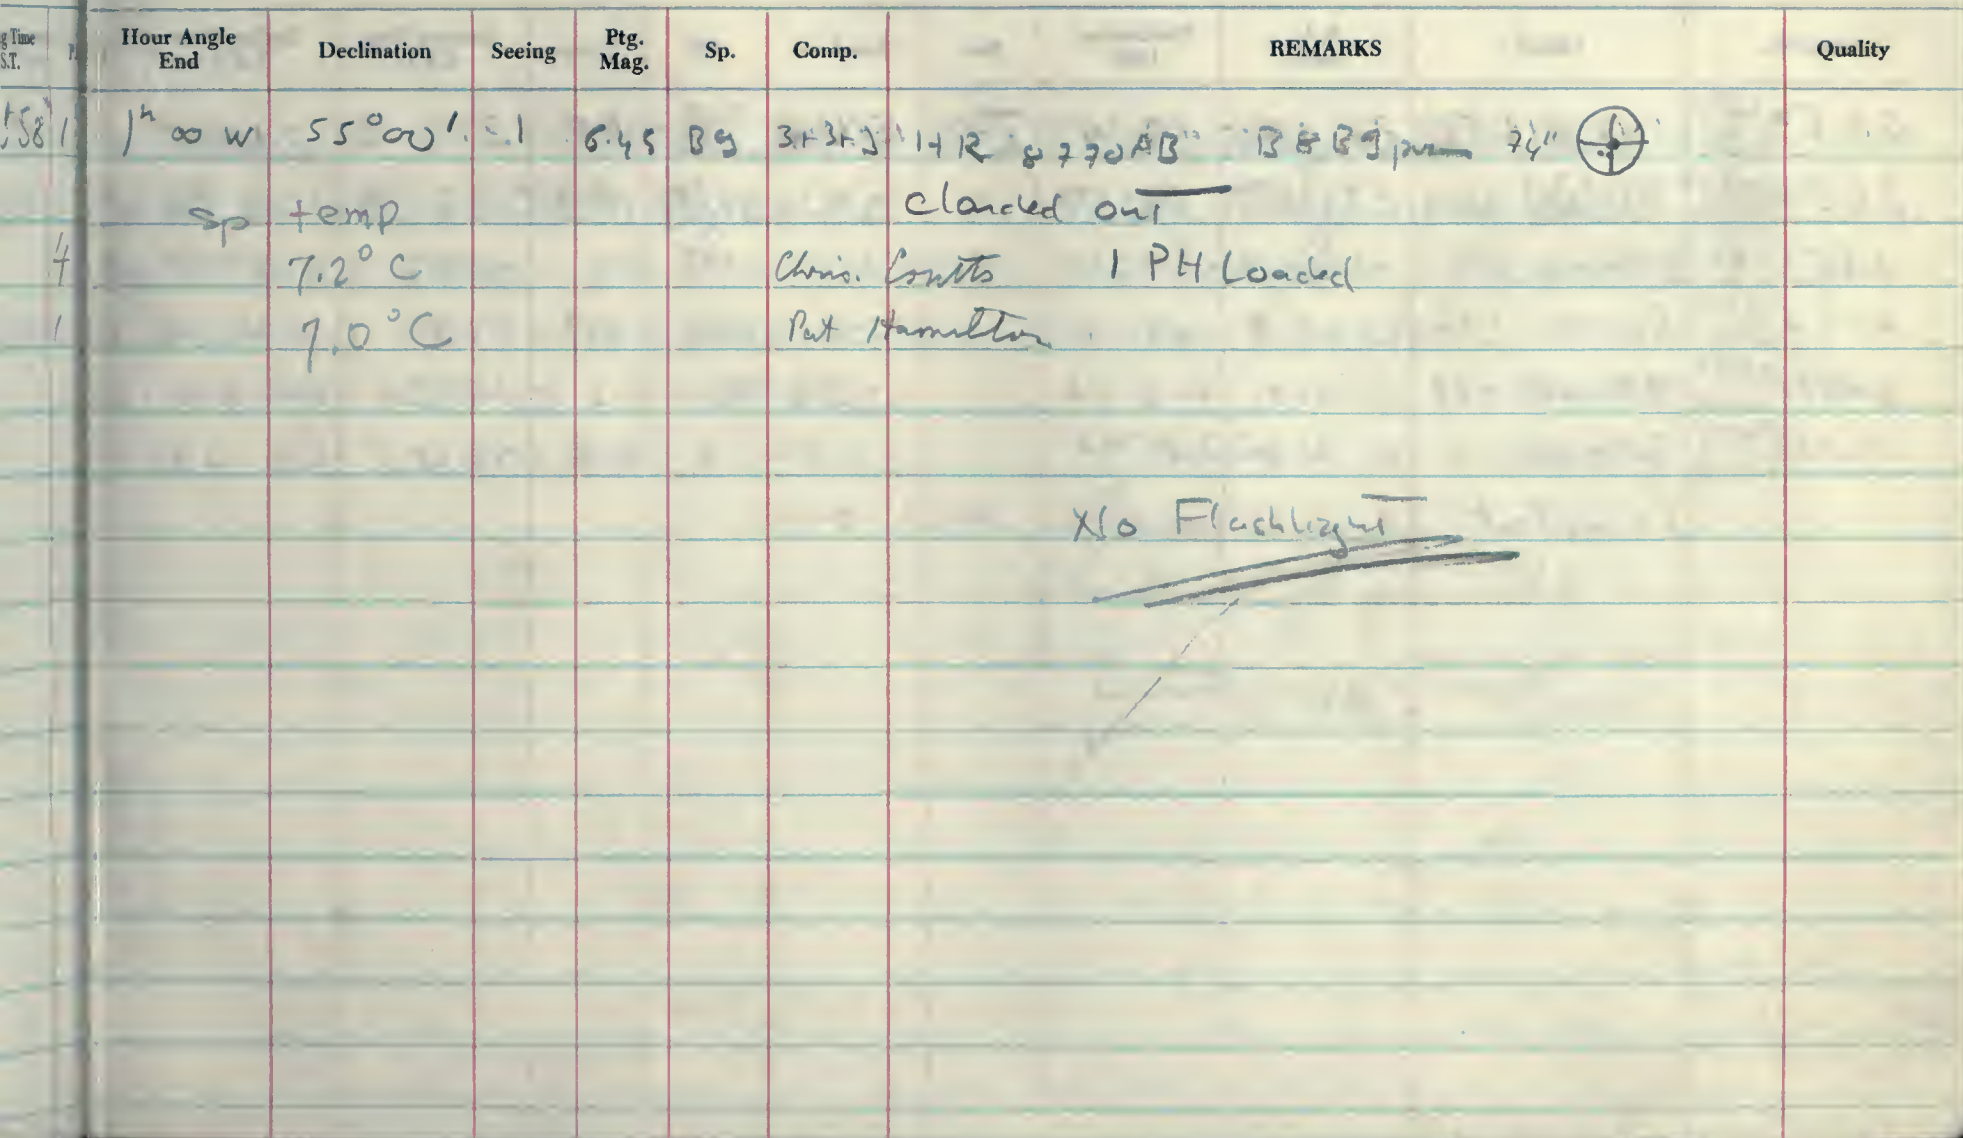 g Time Hour Angle Declination Seeing Ptg. Sp. Comp. REMARKS Quality
S.T. End Mag.
58 1 1h 00 W 55° 00' 6.45 B9 3+3+3 "HR 8770AB" B & B9 74"
sp temp clouded out
4 7.2° C Chris. Coutts 1 PH Loaded
1 7.0° C Pat Hamilton
No Flashlight